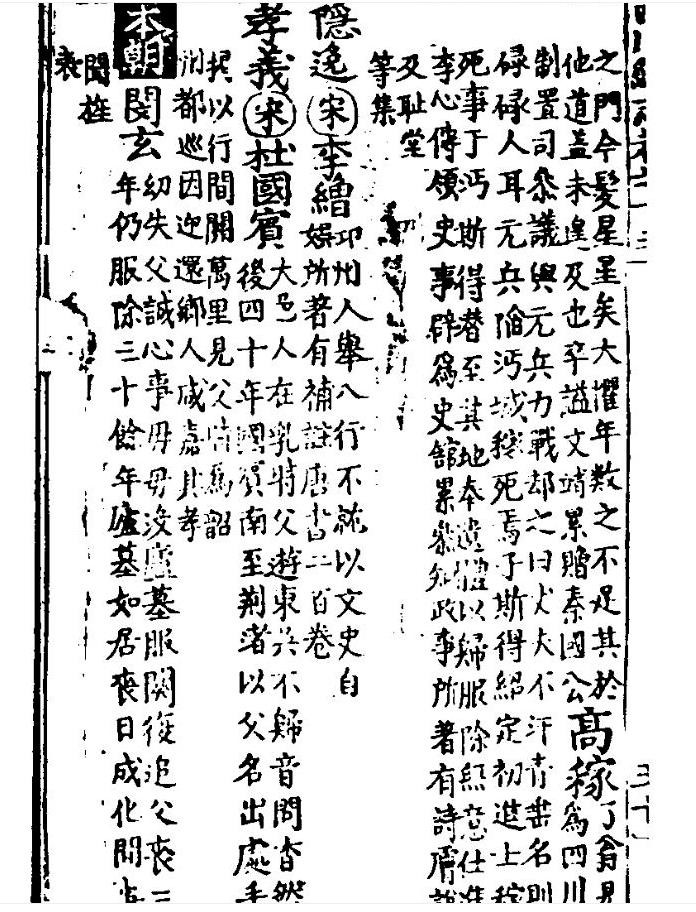 之門今髮星星矣大懼年數之不足其於
他道蓋未遑及也卒謚文靖累贈秦國公
高稼
了翁
為四川
制置司參議與元兵力戰却之曰丈夫不汗青名則
碌碌人耳元兵陷沔城稼死焉子斯得紹定初進士稼
死事于沔斯得潛至其地奉遺體以歸服除無意仕進
李心傳領史事辟為史館累參知政事所著有詩膚說
及恥堂
等集
隱逸宋李繒
邛州人舉八行不就以文史自
娛所著有補註唐書二百卷
孝義宋杜國賓
大邑人在乳時父遊東吳不歸音問杳然
後四十年國賓南至荆渚以父名出處手
揭以行間關萬里見父情為韶
州都巡因迎還鄉人咸其孝
本朝閔玄
幼失父誠心事母母没廬墓服闋復追父喪三
年仍服除三十餘年廬墓如居喪日成化間事
聞旌
表